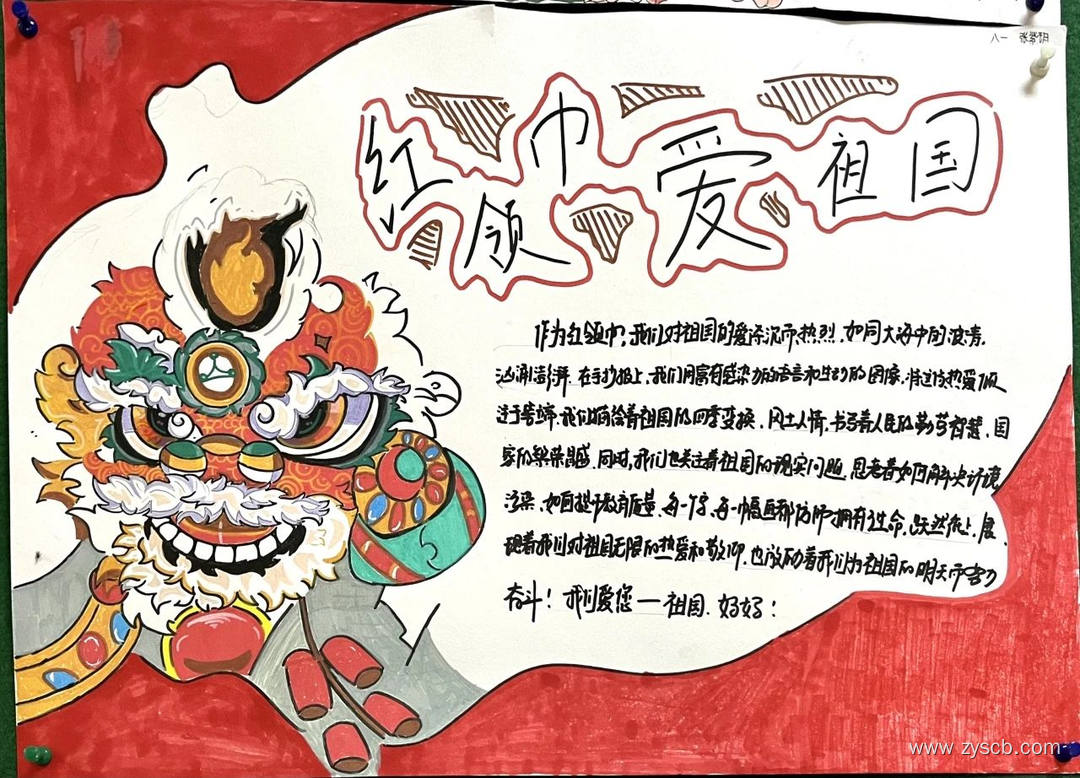 八一 张
红领巾爱祖国
作为红领巾,我们对祖国的爱深沉而热烈.如同大海中的波涛.
汹涌澎湃.在手抄报上,我们用富有感染力的语言和生动的图像.将这份热爱倾
注于笔端.我们描绘着祖国的四季变换、风土人情,书写着人民的勤劳智慧、国
家的繁荣昌盛.同时,我们也关注着祖国的现实问题.思考着如何解决环境
污染、如何提升教育质量.每一个字、每一幅画都仿佛拥有生命,跃然纸上.展
现着我们对祖国无限的热爱和敬仰.也激励着我们为祖国的明天而努力
奋斗!我们爱您——祖国.妈妈!
www.zyscb.com